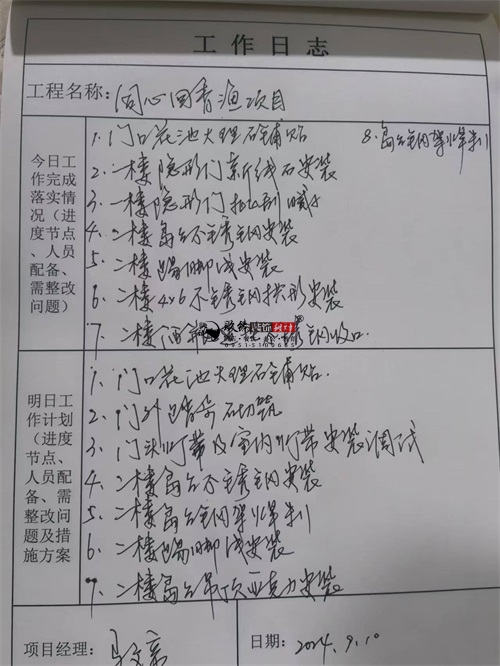 工作日志
工程名称: 同心回香渔项目
今日工作完成落实情况(进度节点、人员配备、需整改问题)
1. 门口花池大理石铺贴
2. 一楼隐形门新线石安装
3. 一楼隐形门批刮腻子
4. 二楼岛台不锈钢安装
5. 二楼踢脚线安装
6. 二楼4×6不锈钢拱形安装
7. 二楼 不锈钢收口.
8. 岛台钢架焊制
装饰设计
明日工作计划(进度节点、人员配备、需整改问题及措施方案
1. 门口花池大理石铺贴.
2. 门外 砌筑
3. 门头灯带及室内灯带安装调试
4. 二楼岛台不锈钢安装
5. 二楼岛台钢架焊制
6. 二楼踢脚线安装
7. 二楼岛台吊顶亚克力安装
项目经理:
日期: 2024.9.10